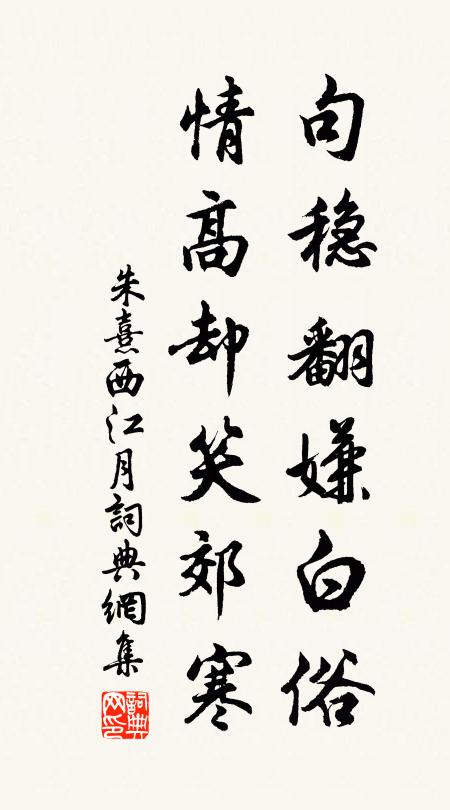 句穩翻嫌白俗
情高却笑郊寒
朱熹西江月詞典網集
詞典網印